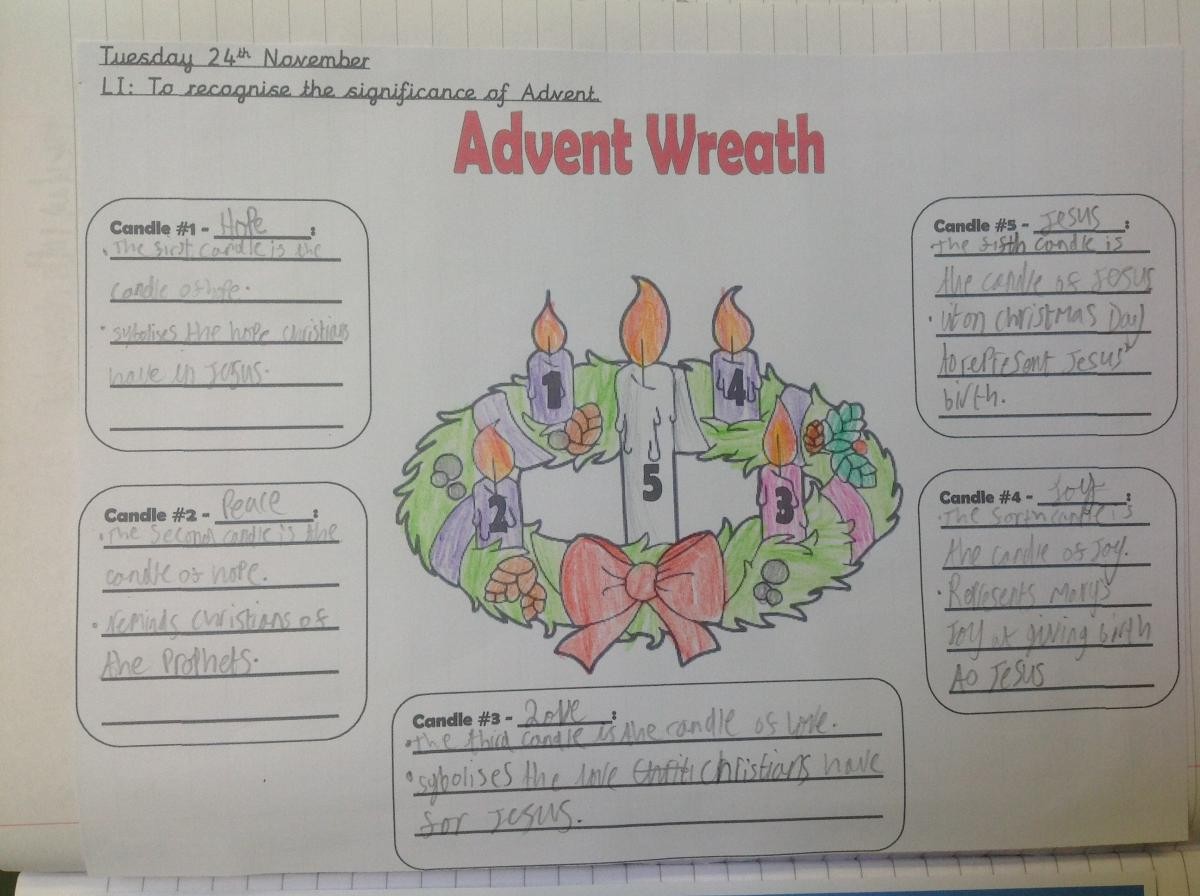 Tuesday 24th November
LI: To recognise the significance of Advent.
Advent Wreath
Candle #1 - Hope :
• The first candle is the
candle of hope.
• sybolises the hope christians
have in Jesus.
Candle #2 - Peace :
• The Second candle is the
candle of hope.
• reminds Christians of
the Prophets.
Candle #3 - Love :
• the third candle is the candle of love.
• sybolises the love christians have
for Jesus.
Candle #4 - Joy :
• The forth candle is
the candle of Joy.
• Represents Mary's
Joy at giving birth
to Jesus
Candle #5 - Jesus :
the fifth candle is
the candle of Jesus
• lit on christmas Day
to represent Jesus'
birth.
1
4
5
2
3